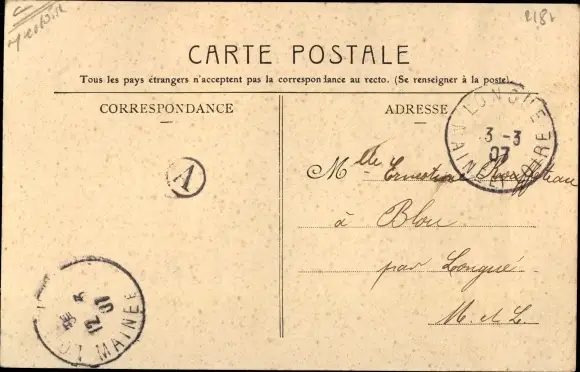 2182
CARTE POSTALE
Tous les pays étrangers n'acceptent pas la correspondance au recto. (Se renseigner à la poste).
CORRESPONDANCE
ADRESSE
LONGUÉ
3 - 3
07
MAINE ET LOIRE
A
Mlle Ernestine
à Blou
par Longué
M. et L.
12 07
MAINE